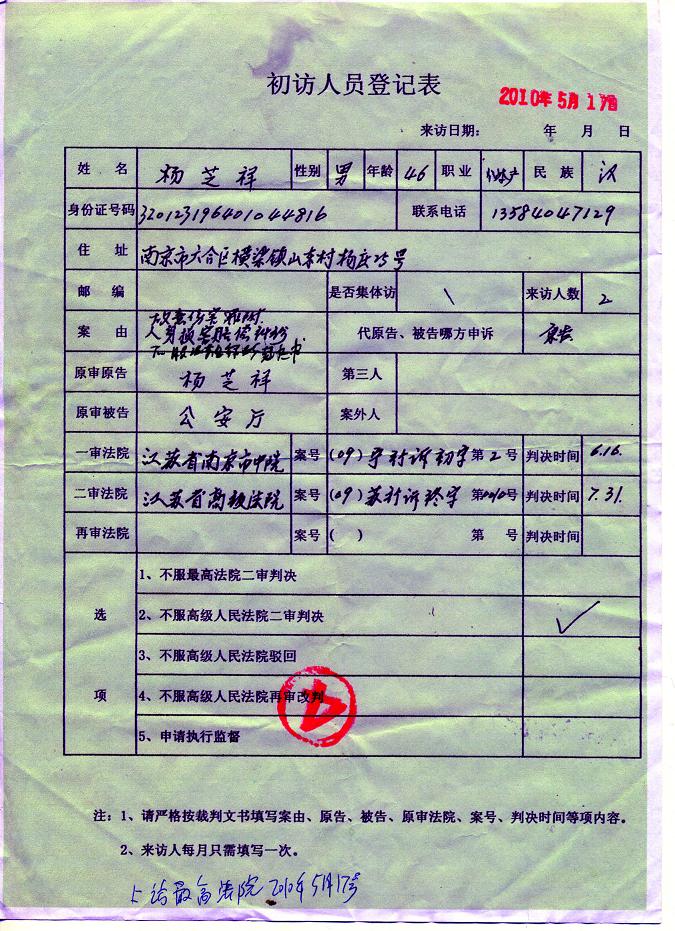 初访人员登记表
2010年5月17日
来访日期： 年 月 日
姓 名 杨芝祥 性别 男 年龄 46 职业 民族 汉
身份证号码 320123196401044816 联系电话 13584047129
住 址 南京市六合区横梁镇山东村杨庄25号
邮 编 是否集体访 \ 来访人数 2
案 由 人员 赔偿纠纷 代原告、被告哪方申诉 原告
原审原告 杨芝祥 第三人
原审被告 公安厅 案外人
一审法院 江苏省南京市中院 案号 (09)宁行诉初字第2号 判决时间 6.16.
二审法院 江苏省高级法院 案号 (09)苏行诉终字第0010号 判决时间 7.31.
再审法院 案号 ( ) 第 号 判决时间
选项
1、不服最高法院二审判决
2、不服高级人民法院二审判决 ✓
3、不服高级人民法院驳回
4、不服高级人民法院再审改判
4
5、申请执行监督
注：1、请严格按裁判文书填写案由、原告、被告、原审法院、案号、判决时间等项内容。
2、来访人每月只需填写一次。
上访最高法院2010年5月17号